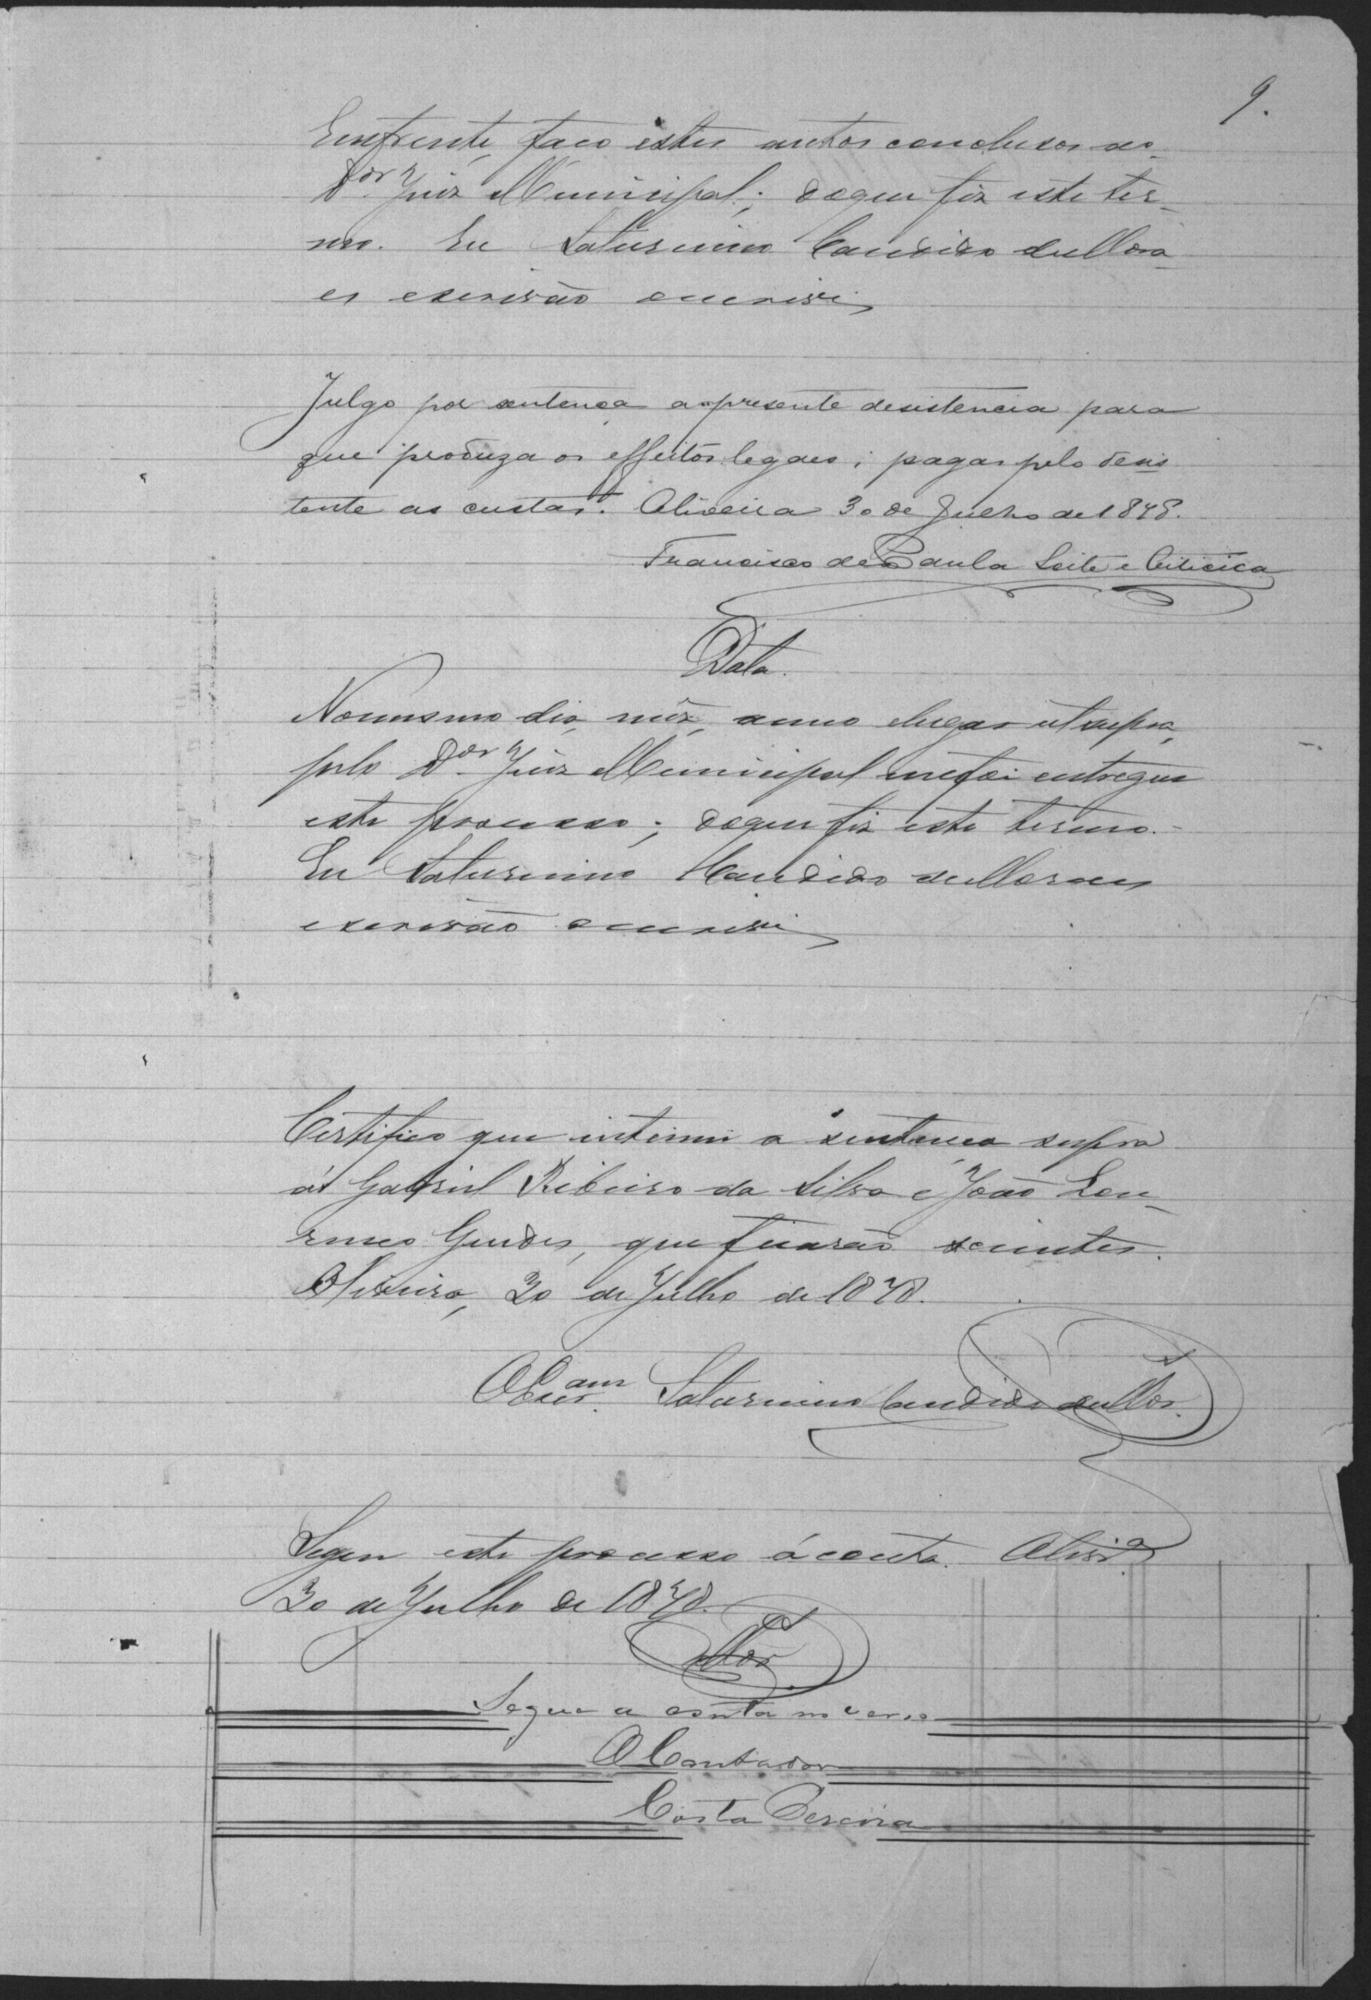 9.
Emfrente, faço estes autos conclusos ao
Dor Juiz Municipal; doque fiz este ter-
mo. Eu Saturnino Candido de Mora-
es escrivão o escrivi
Julgo por sentença a presente desistencia para
que produza os effeitos legaes; pagas pelo desis
tente as custas. Oliveira 30 de Julho de 1878.
Francisco de Paula Leite e Oiticica
Data.
No mesmo dia, mêz, anno elugar ut supra,
pelo Dor Juiz Municipal mefoi entregue
este processo; doque fiz este termo.-
Eu Saturnino Candido de Moraes
escrivão o escrivi
Certifico que intimei a sentença supra
á Gabriel Ribeiro da Silva e João Lou-
renço Guedes, que ficarão scientes.
Oliveira, 30 de Julho de 1878.
O Escram. Saturnino Candido de Mor.
Segue este processo á conta. Olivra
30 de Julho de 1878.
Mor.
Segue a conta no verso
O Contador
Costa Pereira